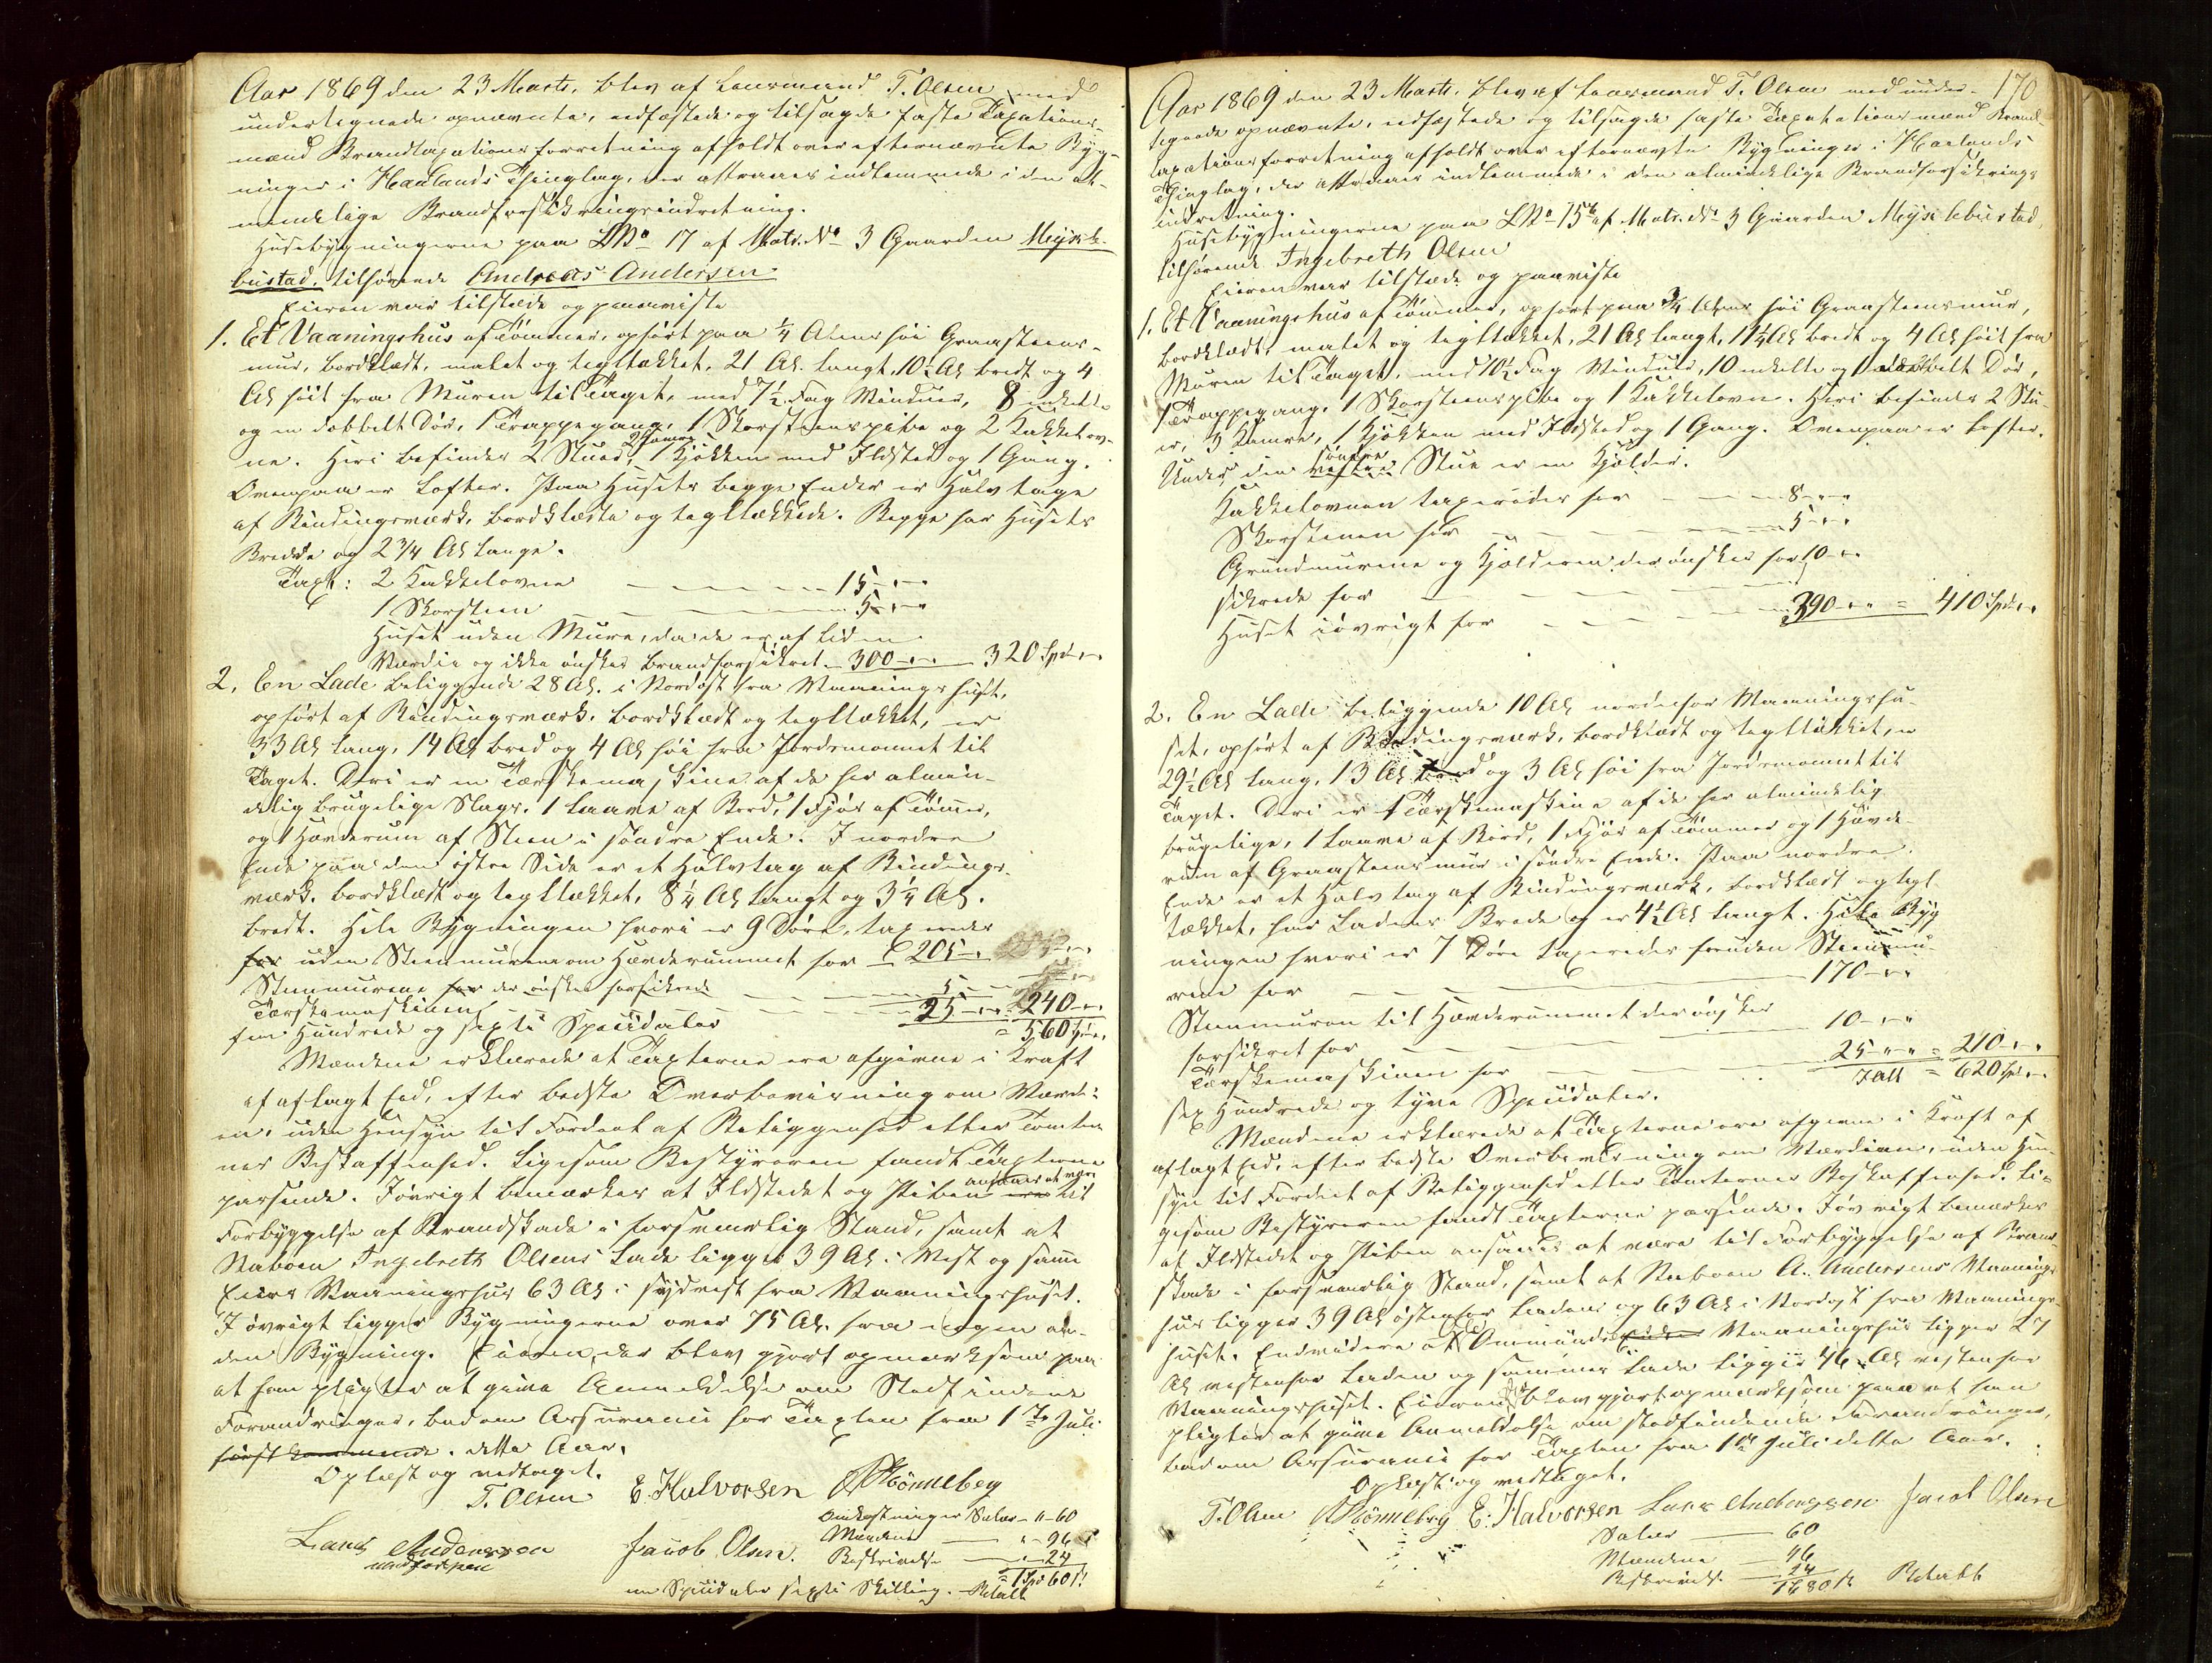 Aar 1869 den 23 Marts, blev af Lensmand T. Olsen med
undertegnede opnævnte, edfæstede og tilsagde faste Taxations-
mænd Brandtaxationsforretning afholdt over efternævnte Byg-
ninger i Haalands Thinglag, der attraaes indlemmede i den al-
mindelige Brandforsikringsindretning.
Husebygningerne paa LNo 17 af Matr. No 3 Gaarden Meysle-
bustad, tilhørende Andreas Andersen
Eieren var tilstæde og paaviste
1. Et Vaaningshus af Tømmer, opført paa ¼ Alens høi Graasteens-
mur, bordklædt, malet og tegltækket, 21 Al. langt, 10½ Al bredt og 4
Al høit fra Muren til Taget, med 7½ Fag Vinduer, 8 enkelte
og en dobbelt Dør, 1 Trappegang, 1 Skorsteenspibe og 2 Kakkelov-
ne. Heri befindes 2 Stuer, 2 Kamre, 1 Kjøkken med Ildsted og 1 Gang.
Ovenpaa er Lofter. Paa Husets begge Ender er Halvtage
af Bindingsværk, bordklædte og tegltækkede. Begge har Husets
Bredde og 2¾ Al lange.
Taxt: 2 Kakkelovne 15 - " - "
1 Skorsteen 5 - " - "
Huset uden Mure, da de er af liden
Værdie og ikke ønskes brandforsikret - 300 - " - " 320 Spd - " - "
2. En Lade beliggende 28 Al. i Nordost fra Vaaningshuset,
opført af Bindingsværk, bordklædt og tegltækket, er
33 Al lang, 14 Al bred og 4 Al høi fra Jordsmonnet til
Taget. Deri er en Tærskemaskine af de her almin-
delig brugelige Slags, 1 Laave af Bord, 1 Fjøs af Tømmer,
og 1 Høvderum af Steen i søndre Ende. I nordre
Ende paa den østre Side er et Halvtag af Bindings-
værk, bordklædt og tegltækket, 8¼ Al langt og 3¼ Al.
bredt. Hele Bygningen hvori er 9 Døre, taxeredes
for uden Steenmurene om Høvderummet for 205 - " - "
Steenmurene for der ønskes forsikrede 5 - " - "
Tærskemaskinen 25 - " - " 240 - " - "
fem Hundrede og sexti Speciedaler = 560 Spd.
Mændene erklærede at Taxterne ere afgivne i Kraft
af aflagt Eed, efter bedste Overbeviisning om Værdi-
en, uden Hensyn til Fordeel af Beliggenhed eller Tomter-
nes Beskaffenhed. Ligesom Bestyreren fandt Taxterne
passende. Iøvrigt bemærkes at Ildstedet og Piben ansaaes at være til
Forbyggelse af Brandskade i forsvarlig Stand, samt at
Naboen Ingebreth Olsens Lade ligger 39 Al. i Vest og samme
Eiers Vaaningshus 63 Al i sydvest fra Vaaningshuset.
I øvrigt ligger Bygningerne over 75 Al. fra nogen an-
den Bygning. Eieren, der blev gjort opmærksom paa
at han pligter at give Anmeldelse om Stedfindende
Forandringer, bad om Assurance for Taxten fra 1ste Juli
først kommende. dette Aar.
Oplæst og vedtaget.
T. Olsen E. Halvorsen Rønneberg
Lars Andersen Jacob Olsen.
med ført Pen
Omkostninger Salær - " - 60
Mændene - " - 96
Beskrivelse - " - 24
= 1 Spd 60 s
en Speciedaler sexti Skilling. Betalt
170
Aar 1869 den 23 Marts, blev af Lensmand T. Olsen med under-
tegnede opnævnte, edfæstede og tilsagde faste Taxtationsmænd Brand-
taxationsforretning afholdt over efternævnte Bygninger i Haalands
Thinglag, der attraaes indlemmede i den almindelige Brandforsikrings
indretning.
Husebygningerne paa LNo 15b af Matr. No 3 Gaarden Meyslebustad,
tilhørende Ingebreth Olsen
Eieren var tilstæde og paaviste
1. Et Vaaningshus af Tømmer, opført paa ¾ Alens høi Graasteensmur,
bordklædt, malet og tegltækket, 21 Al langt, 11¼ Al bredt og 4 Al høit fra
Muren til Taget, med 10½ Fag Vinduer, 10 enkelte og 1 dobbelt Dør,
1 Trappegang, 1 Skorsteenspibe og 1 Kakkelovn. Heri befindes 2 Stu-
er, 3 Kamre, 1 Kjøkken med Ildsted og 1 Gang. Ovenpaa er Lofter.
Under den vestre søndre Stue er en Kjælder.
Kakkelovnen taxeredes for 8 - " - "
Skorstenen for 5 - " - "
Grundmurene og Kjælderen der ønskes for-
sikrede for 10 - " - "
Huset iøvrigt for 390 - " - " = 410 Spd - " - "
2. En Lade beliggende 10 Al nordenfor Vaaningshu-
set, opført af Bindingsværk, bordklædt og tegltækket, er
29½ Al lang, 13 Al bred og 3 Al høi fra Jordsmonnet til
Taget. Deri er 1 Tærskemaskine af de her almindelig
brugelige, 1 Laave af Bord, 1 Fjøs af Tømmer og 1 Høvde-
rum af Graasteensmur i søndre Ende. Paa nordre
Ende er et Halvtag af Bindingsværk, bordklædt og tegl-
tækket, har Ladens Brede og er 4½ Al langt. Hele Byg-
ningen hvori er 7 Døre taxeredes foruden Steenmu-
rene for 170 - " - "
Steenmuren til Høvderummet der ønskes
forsikret for 10 - " - "
Tærskemaskinen for 25 - " - " = 210 - " - "
sex Hundrede og tyve Speciedaler. Jalt = 620 Spd - " - "
Mændene erklærede at Taxterne ere afgivne i Kraft af
aflagt Eed, efter bedste Overbeviisning om Værdien, uden Hen-
syn til Fordeel af Beliggenhed eller Tomternes Beskaffenhed. Li-
gesom Bestyreren fandt Taxterne passende. Iøvrigt bemærkes
at Ildstedet og Piben ansaaes at være til Forbyggelse af Brand-
skade i forsvarlig Stand, samt at Naboen A. Andersens Vaanings-
hus ligger 39 Al østenfor Laden og 63 Al i Nordost fra Vaanings-
huset. Endvidere at Ommund Vaaningshus ligger 27
Al vestenfor Laden og sammes Lade ligger 46 Al vestenfor
Vaaningshuset. Eieren der blev gjort opmærksom paa at han
pligter at give Anmeldelse om stedfindende Forandringer,
bad om Assurance for Taxten fra 1ste Juli dette Aar.
Oplæst og vedtaget.
T. Olsen Rønneberg E. Halvorsen Lars Andersen Jacob Olsen
Salær 60
Mændene 96
Beskrivelse 24
Betalt